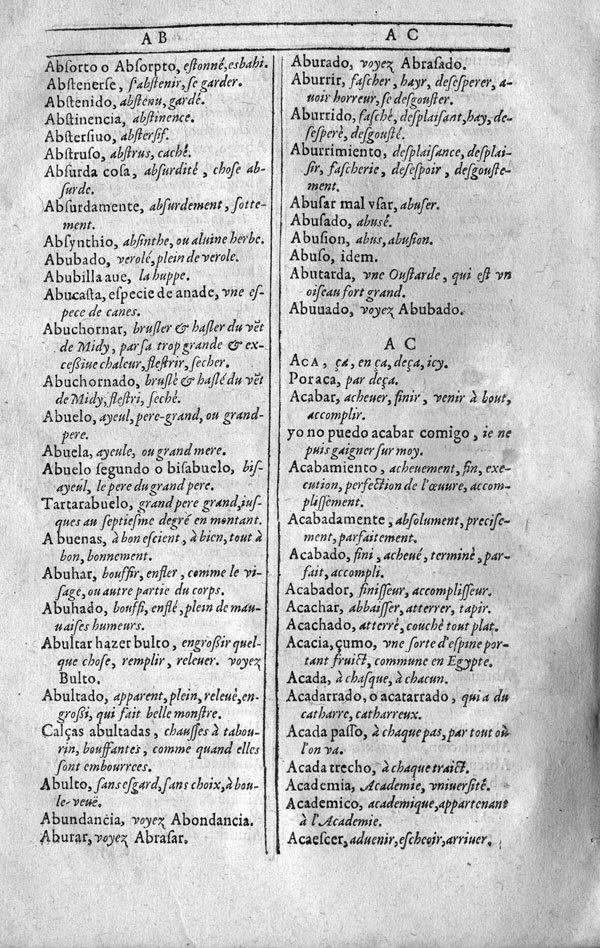 A B
Abſorto o Abſorpto, eſtonné, esbahi.
Abſtenerſe, ſ'abſtenir, ſe garder.
Abſtenido, abſtenu, gardé.
Abſtinencia, abſtinence.
Abſterſiuo, abſterſif.
Abſtruſo, abſtrus, caché.
Abſurda coſa, abſurdité, choſe ab-
ſurde.
Abſurdamente, abſurdement, ſotte-
ment.
Abſynthio, abſinthe, ou aluine herbe.
Abubado, verolé, plein de verole.
Abubilla aue, la huppe.
Abucaſta, eſpecie de anade, vne eſ-
pece de canes.
Abuchornar, bruſler & haſler du vẽt
de Midy, par ſa trop grande & ex-
ceſſiue chaleur, fleſtrir, ſecher.
Abuchornado, bruſlé & haſlé du vẽt
de Midy, fleſtri, ſeché.
Abuelo, ayeul, pere-grand, ou grand-
pere.
Abuela, ayeule, ou grand mere.
Abuelo ſegundo o biſabuelo, biſ-
ayeul, le pere du grand pere.
Tartarabuelo, grand pere grand, iuſ-
ques au ſeptieſme degré en montant.
A buenas, à bon eſcient, à bien, tout à
bon, bonnement.
Abuhar, bouffir, enfler, comme le vi-
ſage, ou autre partie du corps.
Abuhado, bouffi, enflé, plein de mau-
uaiſes humeurs.
Abultar hazer bulto, engroſſir quel-
que choſe, remplir, releuer. voyez
Bulto.
Abultado, apparent, plein, releué, en-
groſſi, qui fait belle monſtre.
Calças abultadas, chauſſes à tabou-
rin, bouffantes, comme quand elles
ſont embourrees.
Abulto, ſans eſgard, ſans choix, à bou-
le-veuë.
Abundancia, voyez Abondancia.
Aburar, voyez Abraſar.
A C
Aburado, voyez Abraſado.
Aburrir, faſcher, hayr, deſeſperer, a-
uoir horreur, ſe deſgouſter.
Aburrido, faſché, deſplaiſant, hay, de-
ſeſperé, deſgouſté.
Aburrimiento, deſplaiſance, deſplai-
ſir, faſcherie, deſeſpoir, deſgouſte-
ment.
Abuſar mal vſar, abuſer.
Abuſado, abuſé.
Abuſion, abus, abuſion.
Abuſo, idem.
Abutarda, vne Ouſtarde, qui eſt vn
oiſeau fort grand.
Abuuado, voyez Abubado.
A C
ACA, ça, en ça, deça, icy.
Poraca, par deça.
Acabar, acheuer, finir, venir à bout,
accomplir.
yo no puedo acabar comigo, ie ne
puis gaigner ſur moy.
Acabamiento, acheuement, fin, exe-
cution, perfection de l'œuure, accom-
pliſſement.
Acabadamente, abſolument, preciſe-
ment, parfaitement.
Acabado, fini, acheué, terminé, par-
fait, accompli.
Acabador, finiſſeur, accompliſſeur.
Acachar, abbaiſſer, atterrer, tapir.
Acachado, atterré, couché tout plat.
Acacia, çumo, vne ſorte d'eſpine por-
tant fruict, commune en Egypte.
Acada, à chaſque, à chacun.
Acadarrado, o acatarrado, qui a du
catharre, catharreux.
Acada paſſo, à chaque pas, par tout où
l'on va.
Acada trecho, à chaque traict.
Academia, Academie, vniuerſité.
Academico, academique, appartenant
à l'Academie.
Acaeſcer, aduenir, eſcheoir, arriuer.